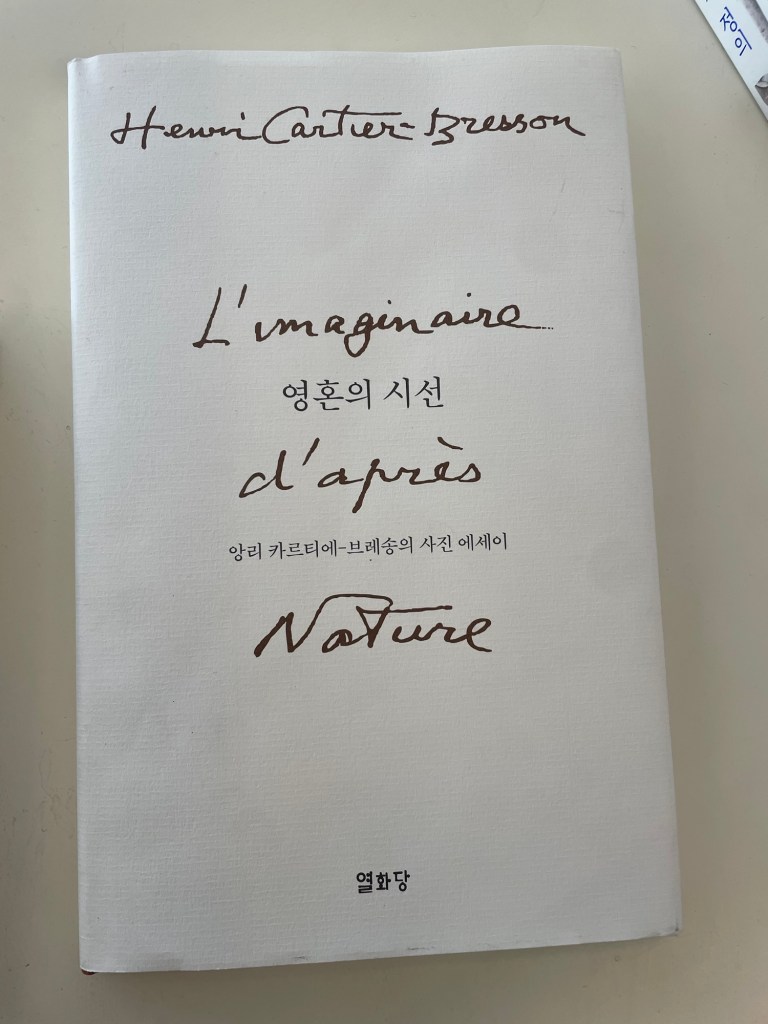 Henri Cartier-Bresson
L'imaginaire
영혼의 시선
d'après
앙리 카르티에-브레송의 사진 에세이
Nature
열화당
정의